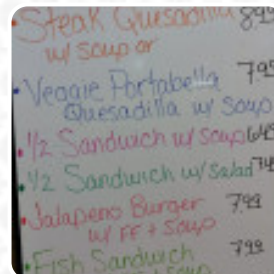 Steak Quesadilla 8.99
w/ Soup or
• Veggie Portabella 799
Quesadilla w/ Soup
• 1/2 Sandwich w/ Soup 649
• 1/2 Sandwich w/ Salad 749
• Jalapeno Burger 799
w/ FF + Soup
• Fish Sandwich 799